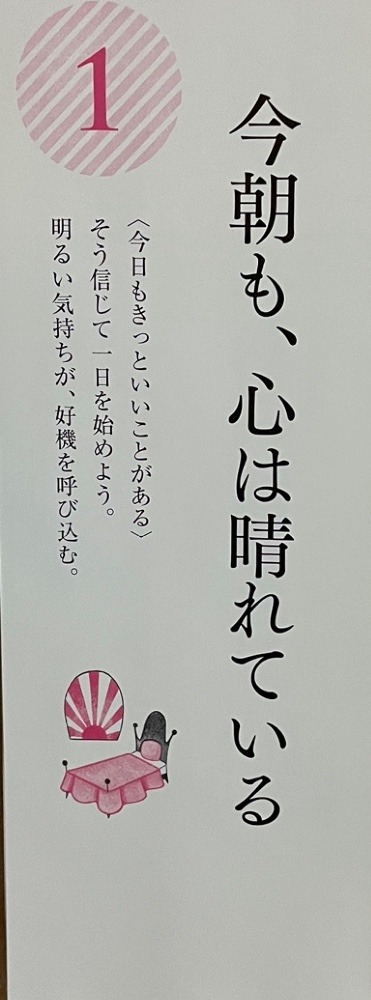 1
今朝も、心は晴れている
〈今日もきっといいことがある〉
そう信じて一日を始めよう。
明るい気持ちが、好機を呼び込む。